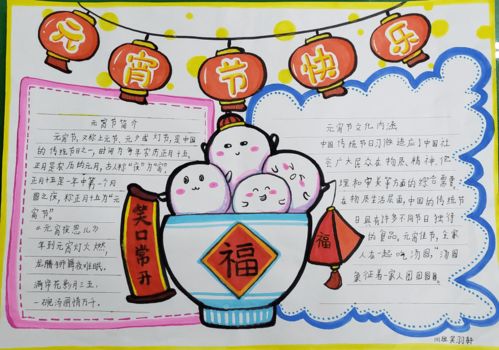 元宵节快乐
元宵节简介
元宵节,又称上元节、元夕或灯节,是中国
的传统节日之一,时间为每年农历正月十五。
正月是农历的元月,古人称"夜"为"宵",
正月十五是一年中第一个月
圆之夜,称正月十五为"元
宵节"。
《元宵夜思儿》
年到元宵灯火燃,
龙腾狮舞夜难眠。
一碗汤圆情万千。
笑口常开
福
福
元宵节文化内涵
中国传统节日习俗适应了中国社
会广大民众在物质、精神、伦
理和审美等方面的综合需要
在物质生活层面,中国的传统节
日具有许多不同节日独特
的食品。元宵佳节,全家
人在一起吃"汤圆","汤圆"
象征着一家人团团圆圆